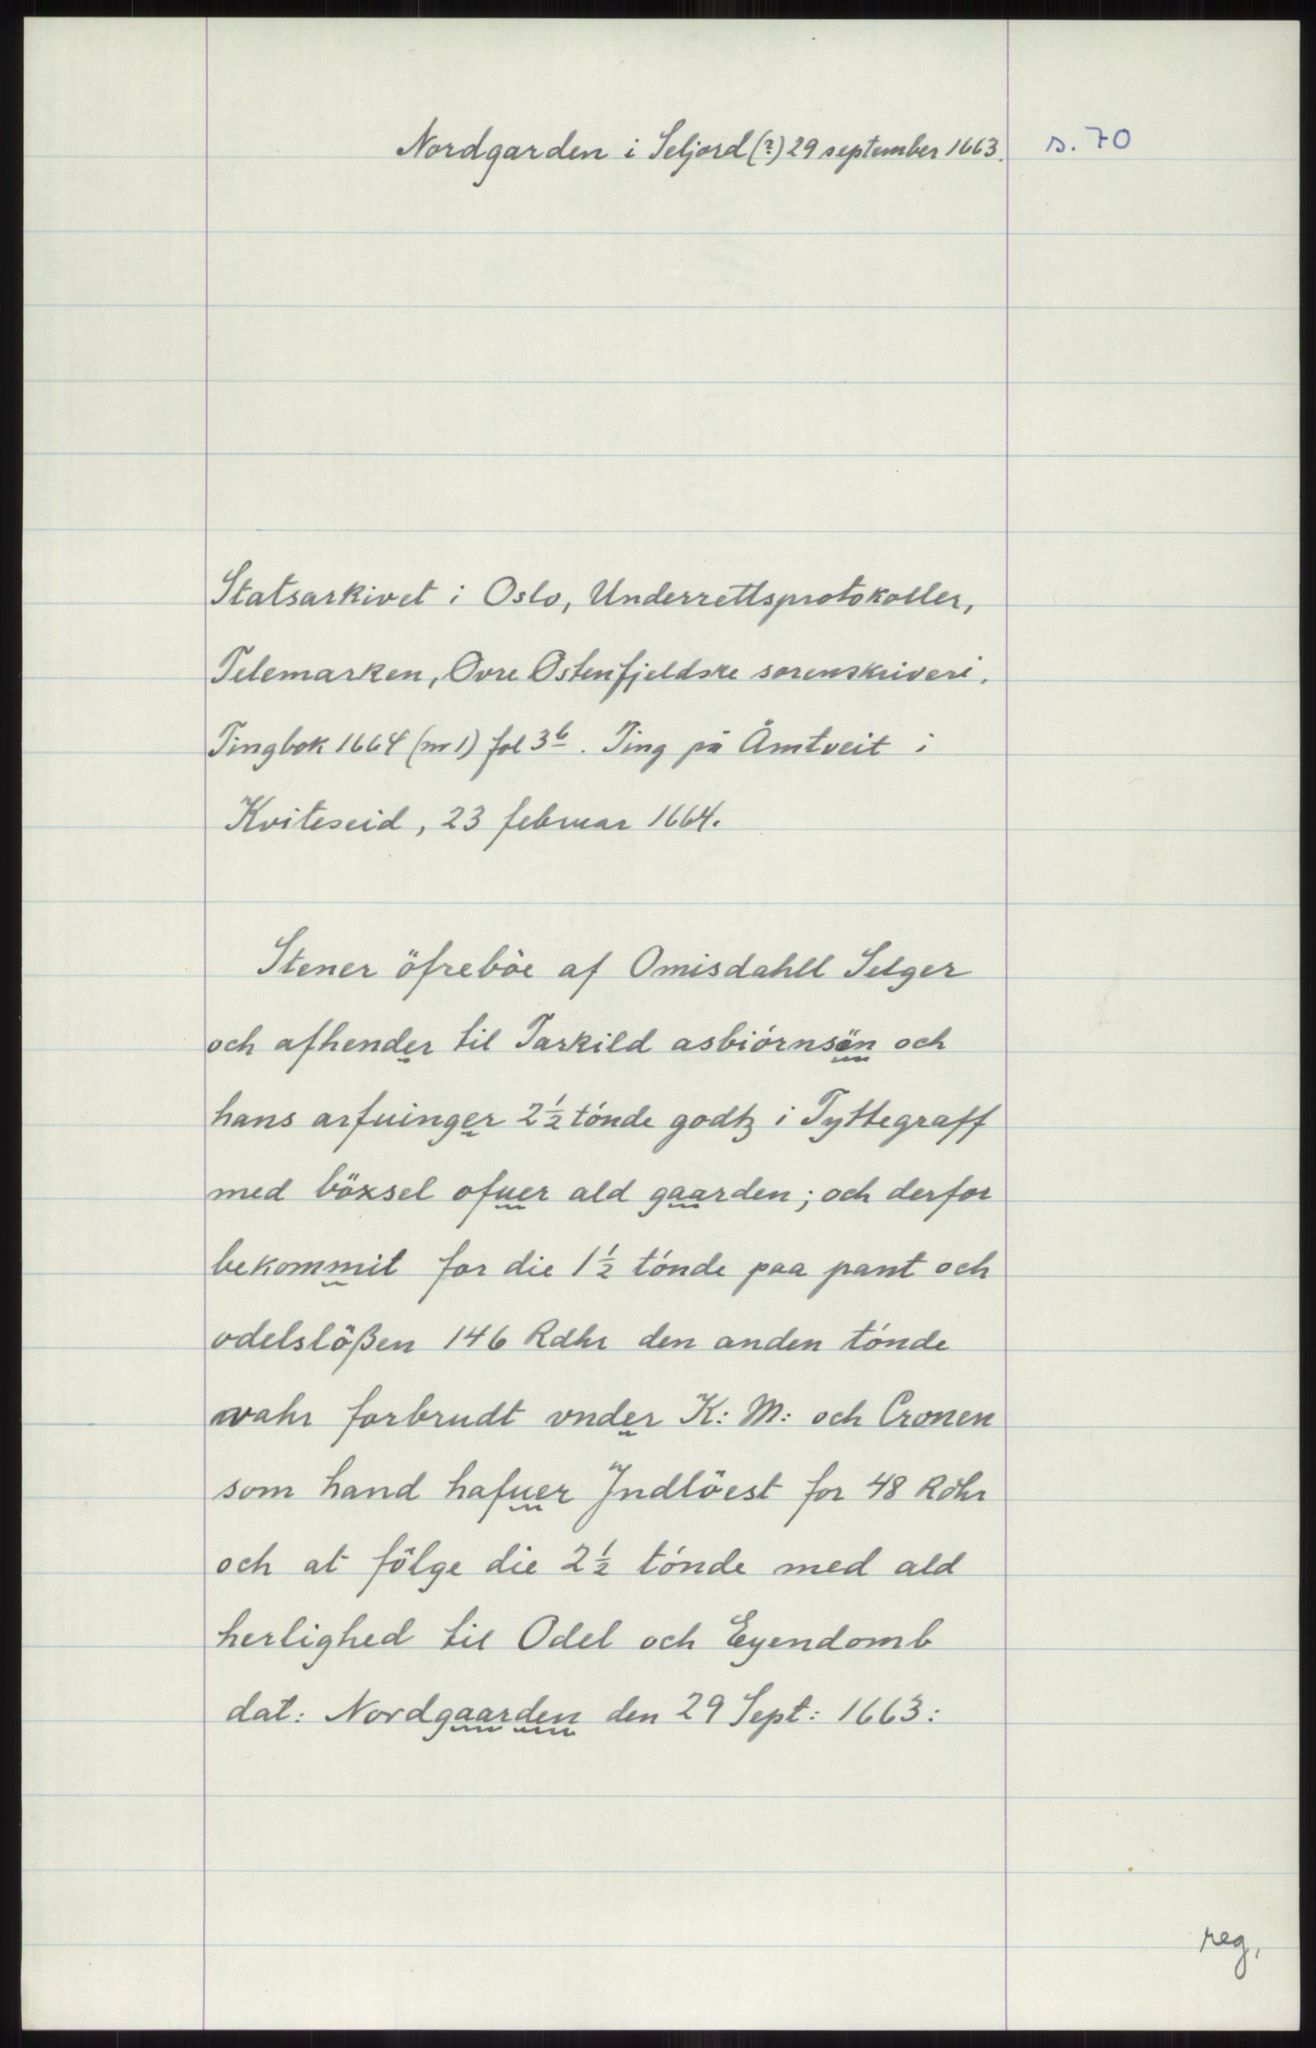 Nordgarden i Seljord (?) 29 september 1663. s. 70
Statsarkivet i Oslo, Underrettsprotokoller,
Telemarken, Øvre Østenfjeldske sorenskriveri.
Tingbok 1664 (nr 1) fol 3b. Ting på Åmtveit i
Kviteseid, 23 februar 1664.
Stener öfreböe af Omisdahll Selger
och afhender til Tarkild asbiórnsön och
hans arfuinger 2½ tónde godtz i Tyttegraff
med böxsel ofuer ald gaarden; och derfor
bekommit for die 1½ tónde paa pant och
odelslößen 146 Rdhr den anden tónde
wahr forbrudt vnder K: M: och Cronen
som hand hafuer Jndlöest for 48 Rdhr
och at fölge die 2½ tónde med ald
herlighed til Odel och Eyendomb
dat: Nordgaarden den 29 Sept: 1663:
reg,